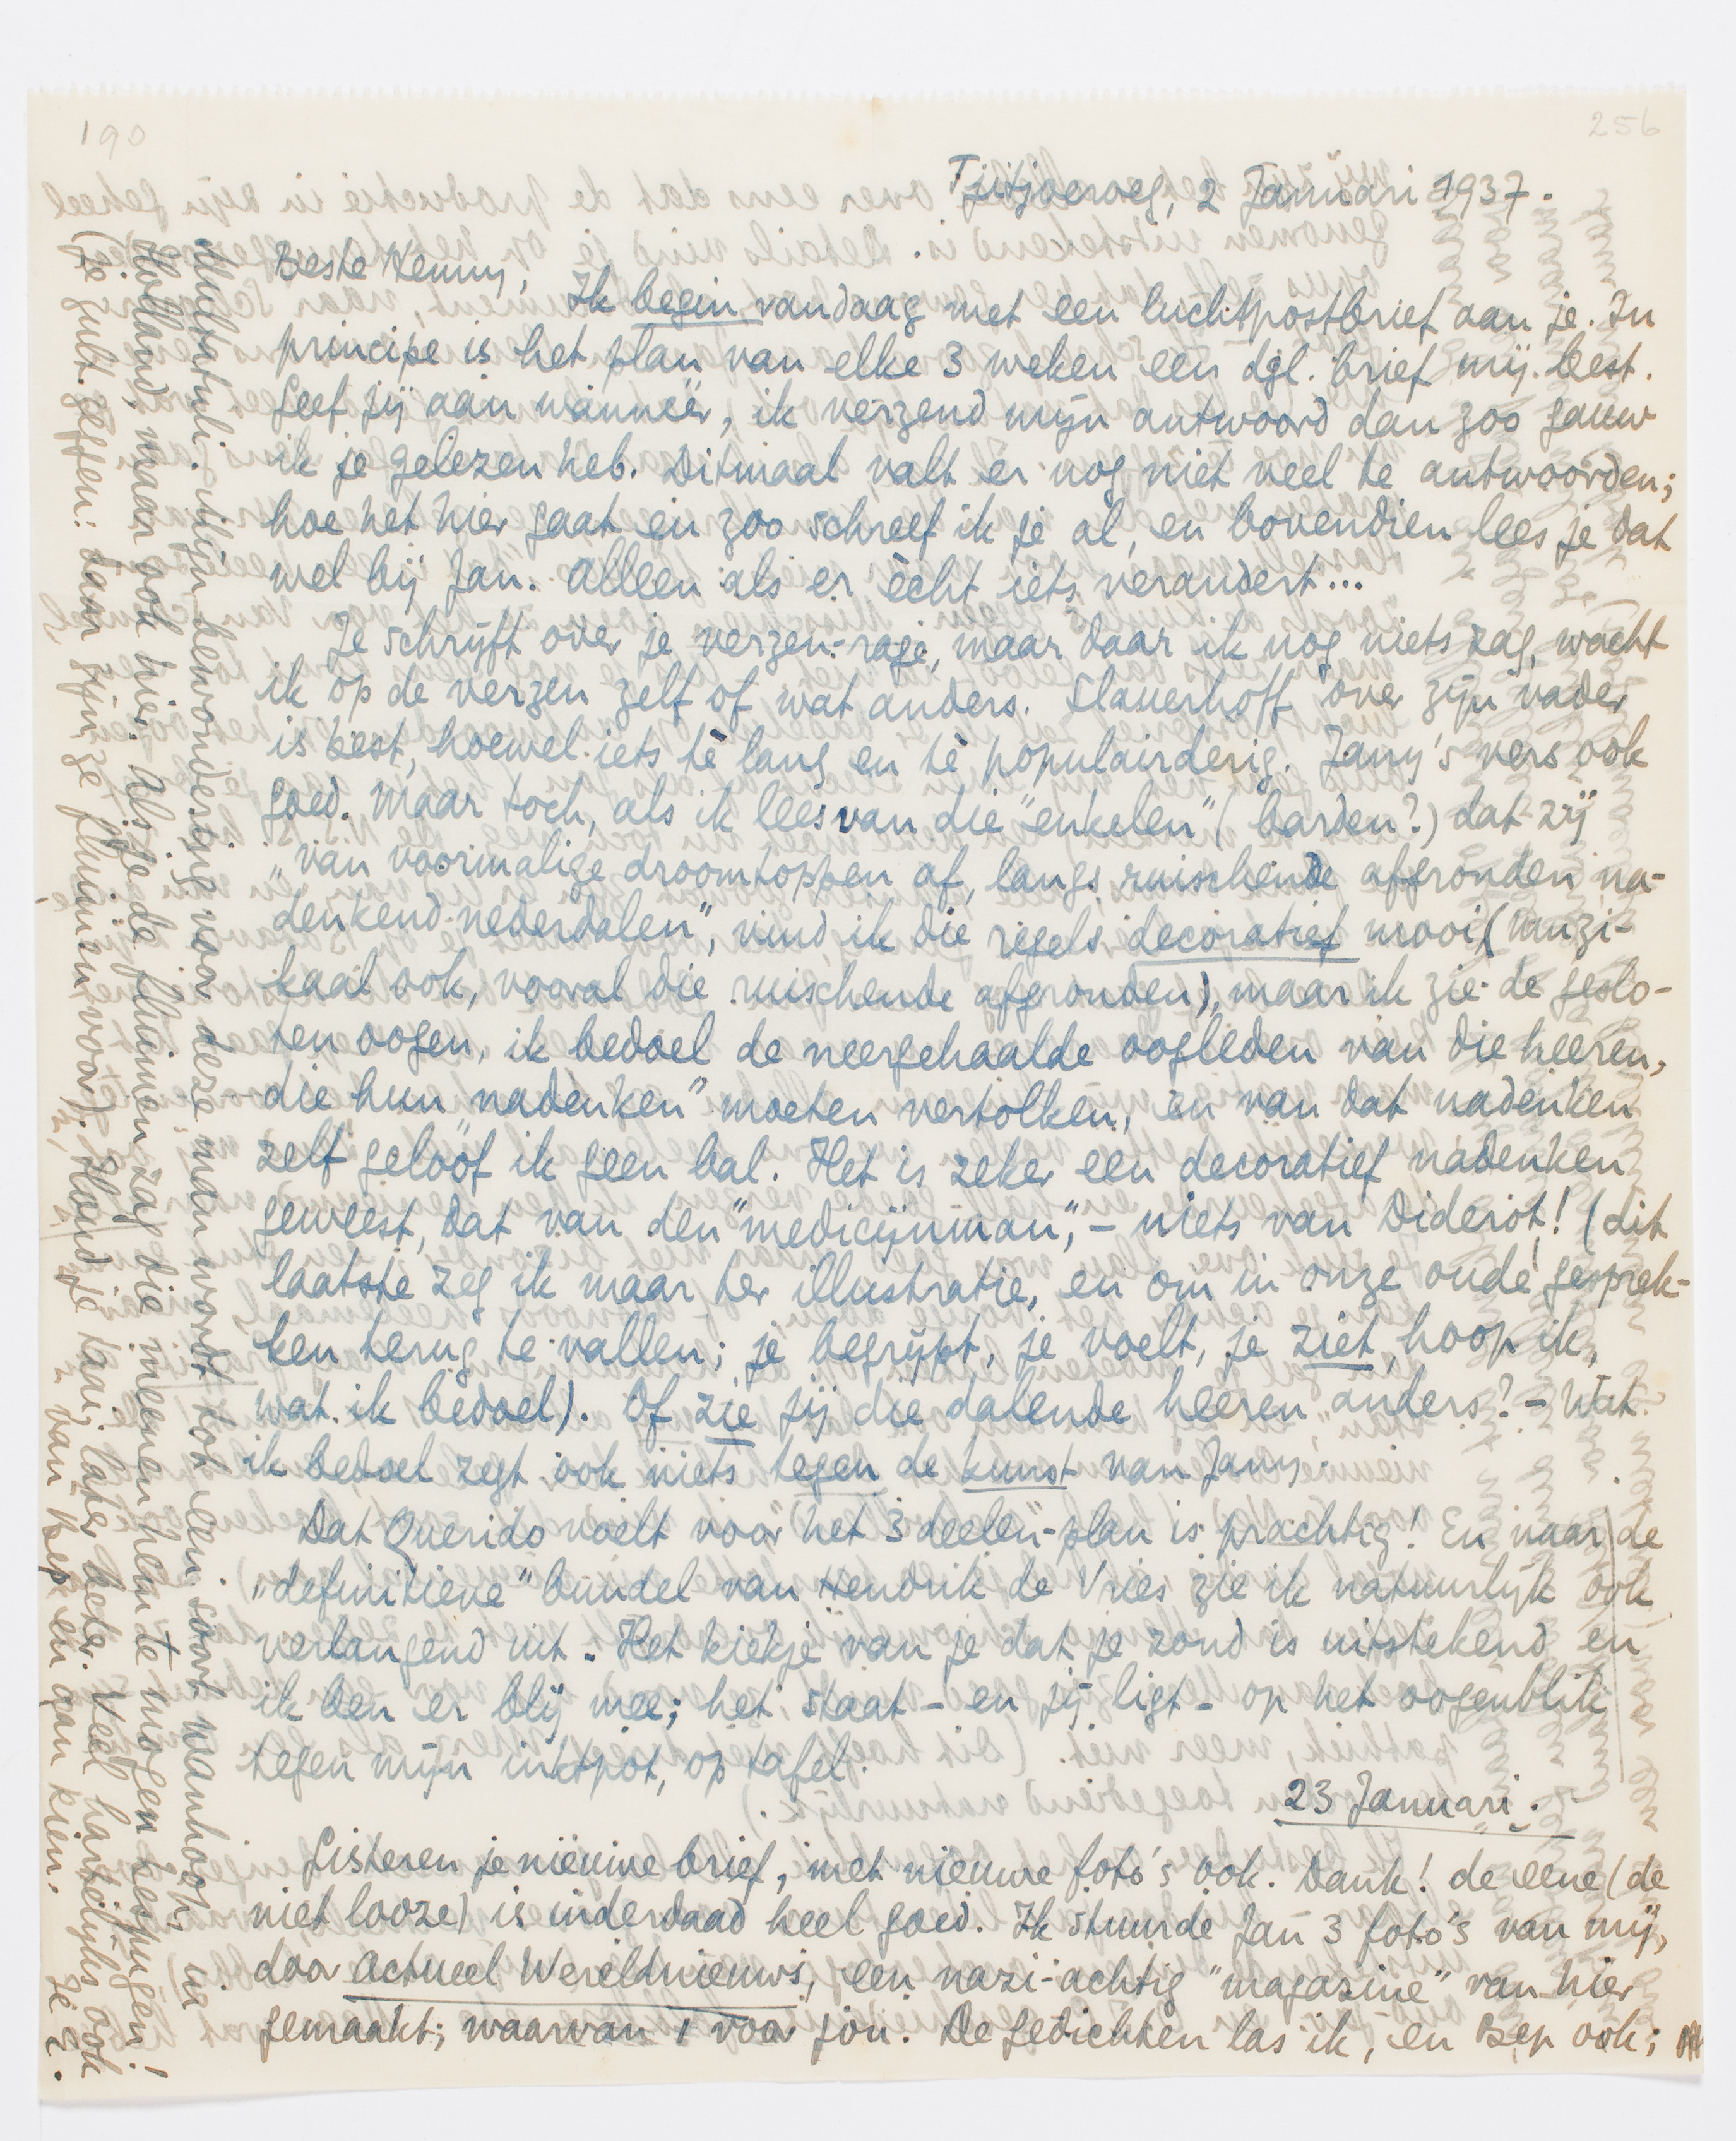 190
256
Tjitjoeroeg, 2 Januari 1937.
Beste Henny,
Ik begin vandaag met een luchtpostbrief aan je. In
principe is het plan van elke 3 weken een dgl. brief mij best.
Geef jij aan wanneer, ik verzend mijn antwoord dan zoo gauw
ik je gelezen heb. Ditmaal valt er nog niet veel te antwoorden;
hoe het hier gaat en zoo schreef ik je al, en bovendien lees je dat
wel bij Jan. Alleen als er ècht iets verandert...
Je schrijft over je verzen-rage, maar daar ik nog niets zag, wacht
ik op de verzen zelf of wat anders. Slauerhoff over zijn vader
is best, hoewel iets tè lang en tè populairderig. Jany's vers ook
goed. Maar toch, als ik lees van die "enkelen" (barden?) dat zij
"van voormalige droomtoppen af, langs ruischende afgronden na-
denkend nederdalen", vind ik die regels decoratief mooi (muzi-
kaal ook, vooral die ruischende afgronden), maar ik zie de geslo-
ten oogen, ik bedoel de neergehaalde oogleden van die heeren,
die hun "nadenken" moeten vertolken, en van dat nadenken
zelf geloof ik geen bal. Het is zeker een decoratief nadenken
geweest, dat van den "medicijnman", – niets van Diderot! (dit
laatste zeg ik maar ter illustratie, en om in onze oude gesprek-
ken terug te vallen; je begrijpt, je voelt, je ziet, hoop ik,
wat ik bedoel). Of zie jij die dalende heeren anders? – Wat
ik bedoel zegt ook niets tegen de kunst van Jany.
Dat Querido voelt voor het 3 deelen-plan is prachtig! En naar de
"definitieve" bundel van Hendrik de Vries zie ik natuurlijk ook
verlangend uit. Het kiekje van je dat je zond is uitstekend en
ik ben er blij mee; het staat – en jij ligt – op het oogenblik
tegen mijn inktpot, op tafel.
23 Januari.
Gisteren je nieuwe brief, met nieuwe foto's ook. Dank! de eene (de
niet looze) is inderdaad heel goed. Ik stuurde Jan 3 foto's van mij,
door Actueel Wereldnieuws, een nazi-achtig "magazine" van hier
gemaakt; waarvan 1 voor jou. De gedichten las ik, en Bep ook;
Multatuli. Mijn bewondering voor deze man wordt tot een soort wanhoop in
Holland, maar ook hier. Als je de fluimen zag die meenen hem te mogen bespugen!
(Je zult zeggen: daar zijn ze fluimen voor). Houd je taai, later beter. Veel hartelijks ook
van Bep en aan Rien.
Je E.